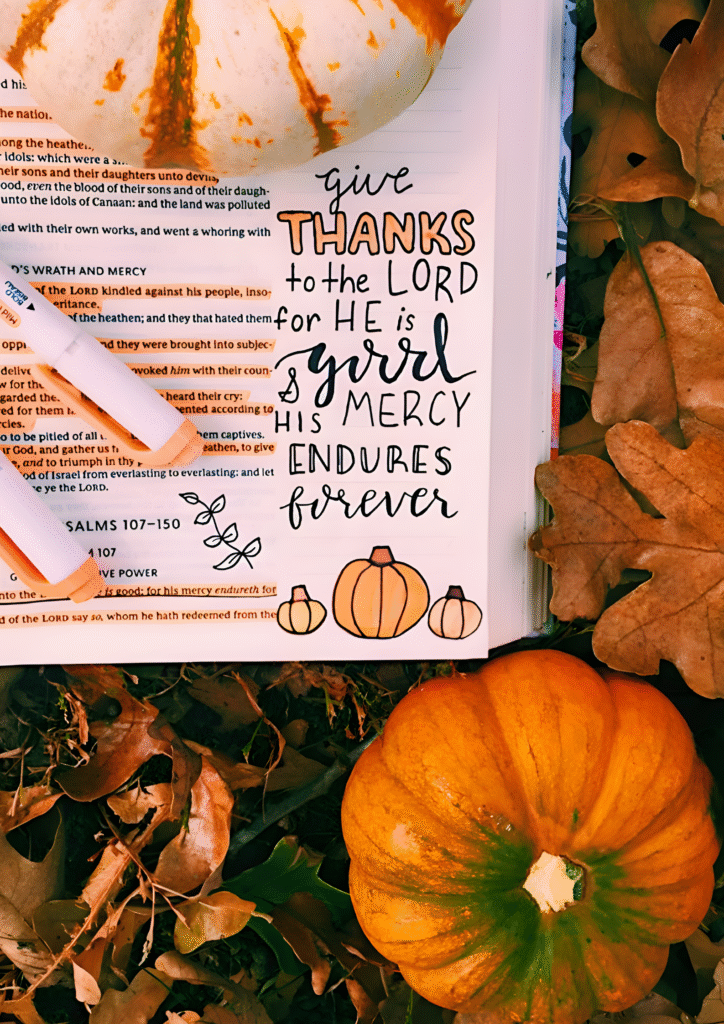 d his
the nation
ong the heathen,
idols: which were a
eir sons and their daughters unto devils,
ood, even the blood of their sons and of their daugh-
unto the idols of Canaan: and the land was polluted
ed with their own works, and went a whoring with
D'S WRATH AND MERCY
of the LORD kindled against his people, inso-
eritance.
of the heathen; and they that hated them
opp nd they were brought into subjec-
deliv rovoked him with their coun-
w for the
garded the heard their cry:
red for them ented according to
rcies.
o to be pitied of all t em captives.
ur God, and gather us f eathen, to give
e, and to triumph in thy p
od of Israel from everlasting to everlasting: and let
e ye the LORD.
SALMS 107–150
107
VE POWER
nto the is good: for his mercy endureth for
d of the LORD say so, whom he hath redeemed from the
BOLD
give
THANKS
to the LORD
for HE is
good
&
HIS MERCY
ENDURES
forever